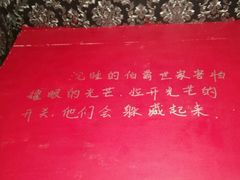 沉睡的伯爵世家害怕
耀眼的光芒.姓开光芒的
开关,他们会躲藏起来.